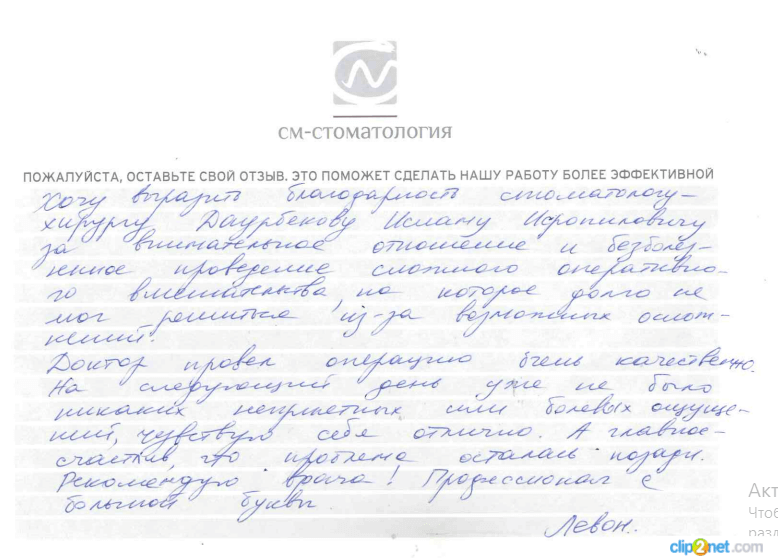 СМ-СТОМАТОЛОГИЯ
ПОЖАЛУЙСТА, ОСТАВЬТЕ СВОЙ ОТЗЫВ. ЭТО ПОМОЖЕТ СДЕЛАТЬ НАШУ РАБОТУ БОЛЕЕ ЭФФЕКТИВНОЙ
Хочу выразить благодарность стоматологу-
хирургу Даурбекову Исламу Исропиловичу
за внимательное отношение и безболез-
ненное проведение сложного оперативно-
го вмешательства, на которое долго не
мог решиться из-за возможных ослож-
нений.
Доктор провел операцию очень качественно.
На следующий день уже не было
никаких неприятных или болевых ощуще-
ний, чувствую себя отлично. А главное-
счастлив, что проблема осталась позади.
Рекомендую врача! Профессионал с
большой буквы.
Левон.
Акт
Чтоб
разд
clip2net.com